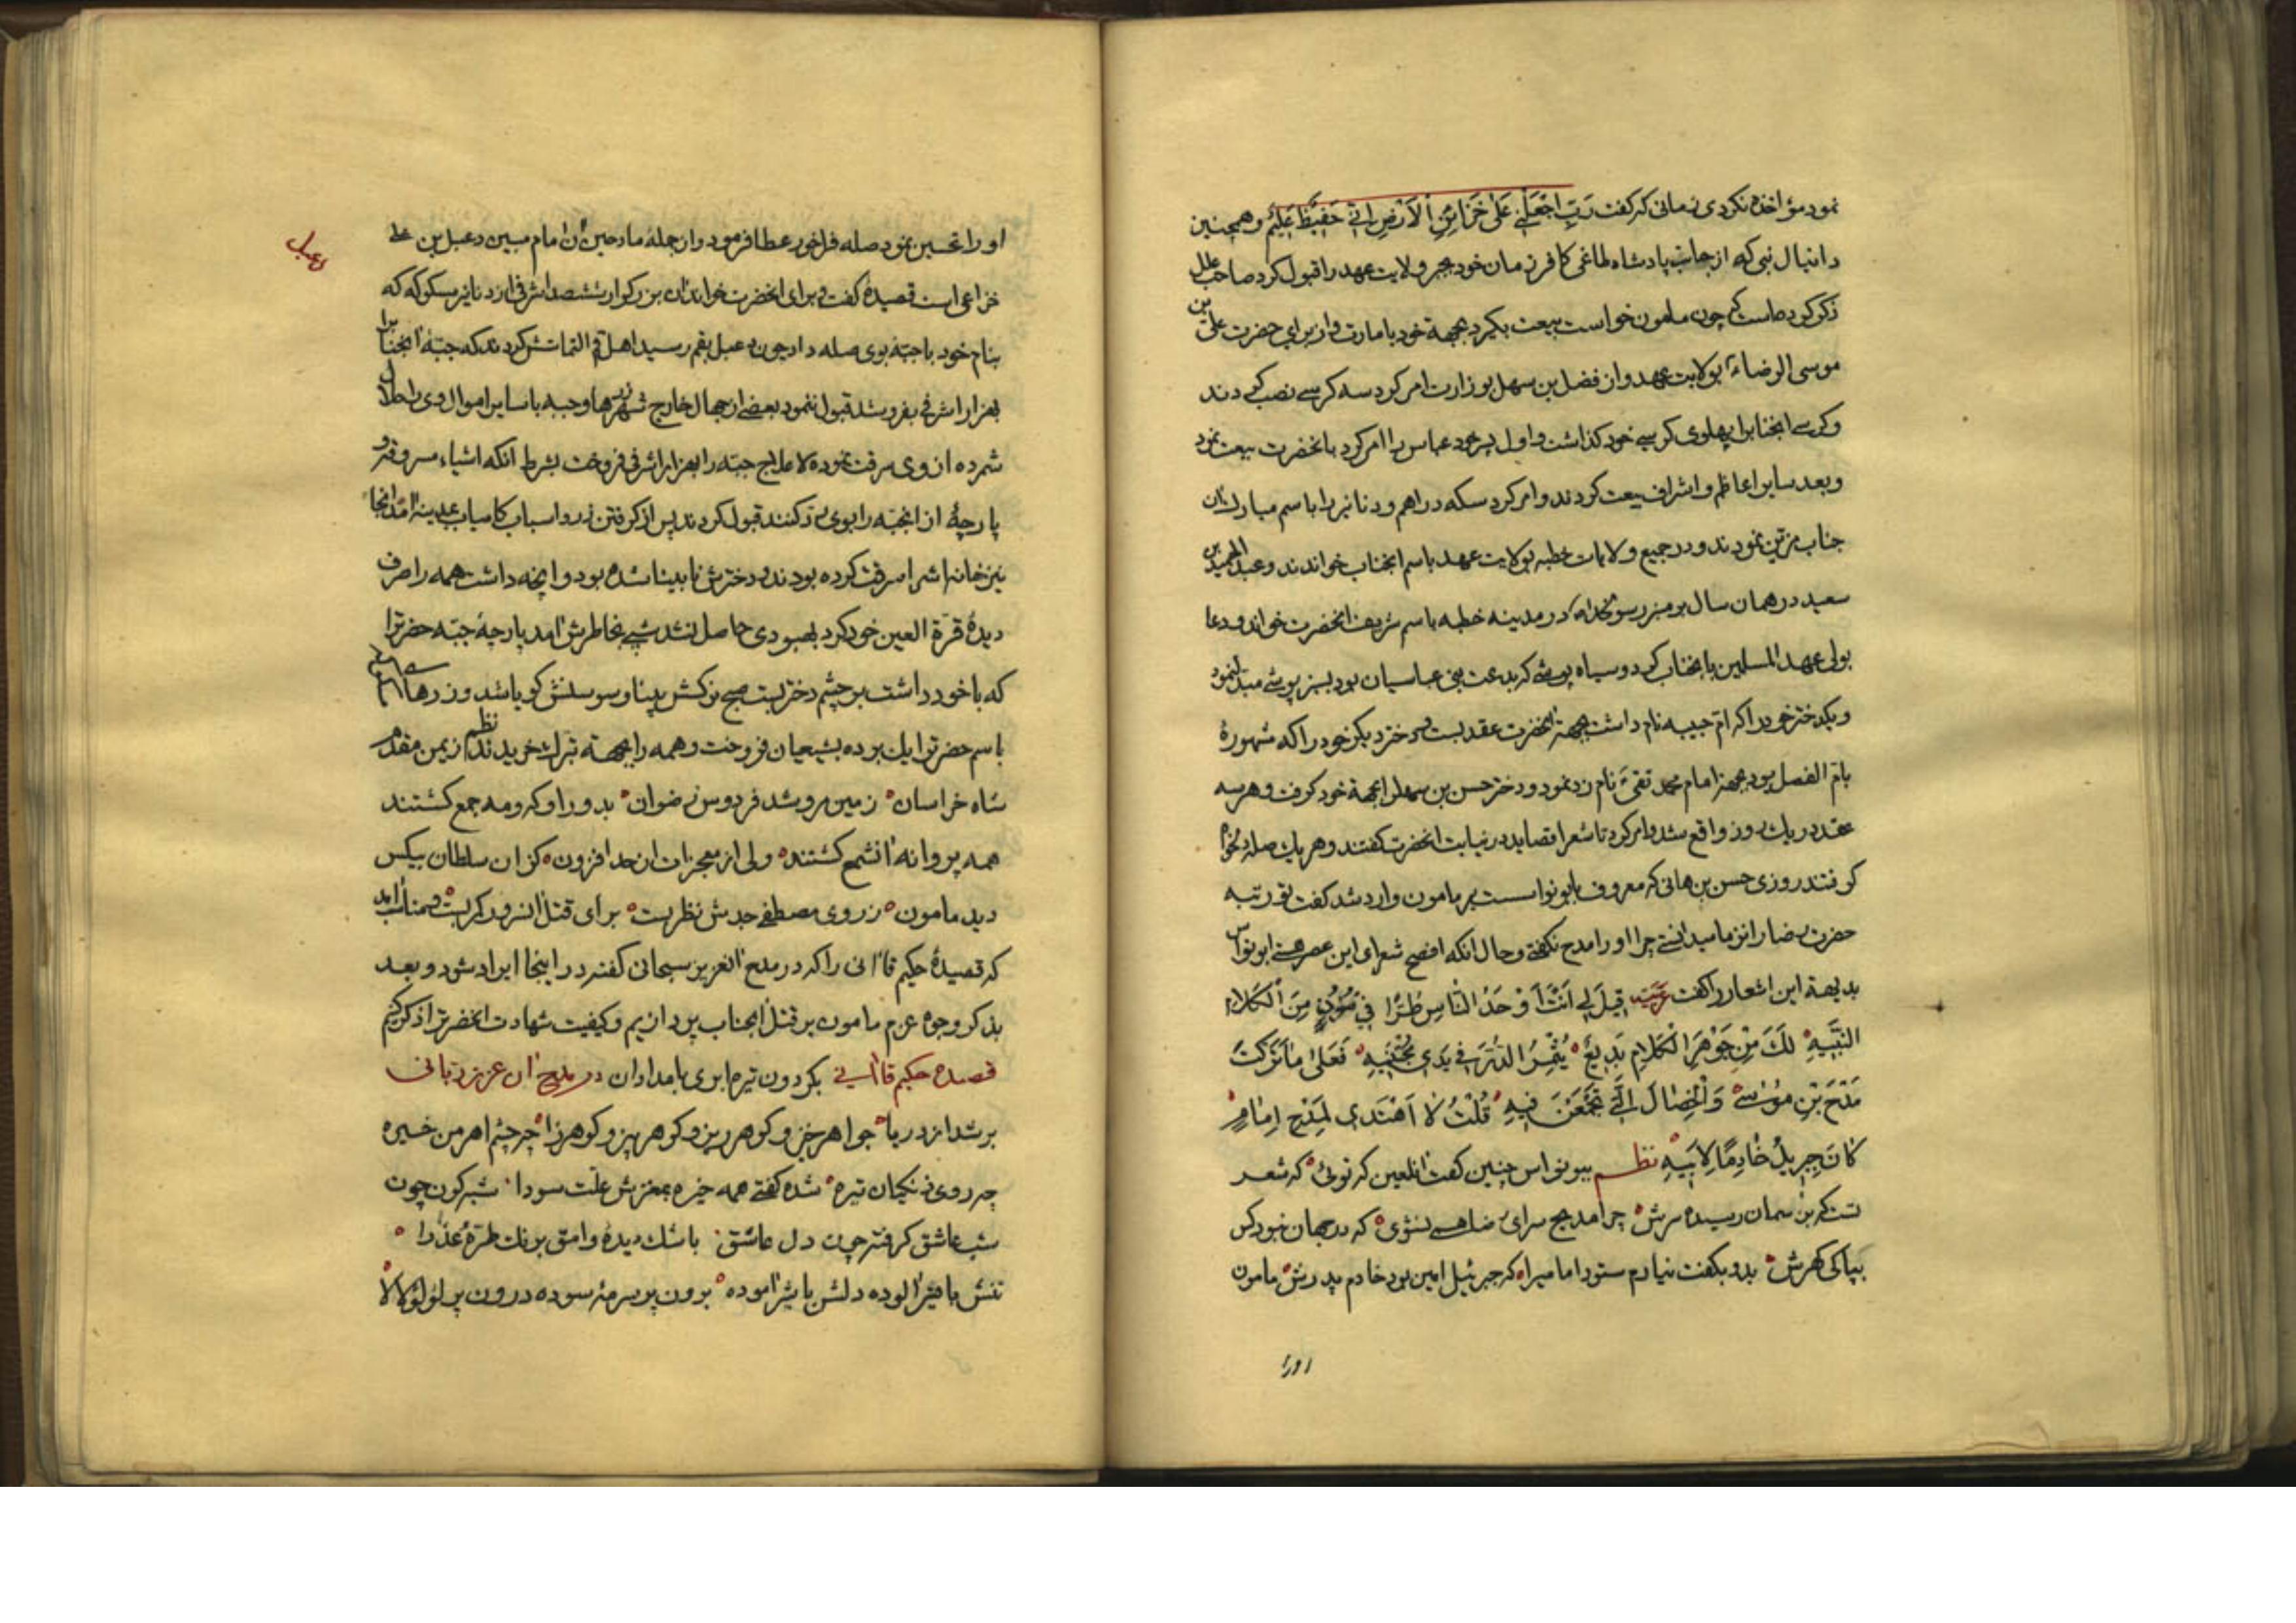 نمود مؤاخذه نکردی زمانی که گفت رَبِّ اجْعَلْنِی عَلیٰ خَزَائِنِ اْلاَرْضِ اِنّی حَفِیظٌ عَلِیمٌ و همچنین
دانیال نبی که از جانب پادشاه طاغی کافر زمان خود بجبر ولایت عهد را قبول کرد صاحب علل
ذکر کرده است که چون مامون خواست بیعت بکیرد بجهة خود بامارت و از برای حضرت علی بن
موسی الرضاء بولایت عهد و از فضل بن سهل بوزارت امر کرد سه کرسے نصب کردند
و کرسے انجنابرا پهلوی کرسے خود کذاشت و اول پسر خود عباس را امر کرد بانحضرت بیعت نمود
و بعد سایر اعاظم و اشراف بیعت کردند و امر کرد سکه دراهم و دنانیر را باسم مبارک ان
جناب مزین نمودند و در جمیع ولایات خطبه بولایت عهد باسم انجناب خواندند و عبد الحمید بن
سعید در همان سال بر منبر رسولخدا در مدینه خطبه باسم شریف انحضرت خواند و دعا
بولی عهد المسلمین بانجناب کرد و سیاه پوشے که بدعت بنی عباسیان بود بسبز پوشے مبدل نمود
و یکدختر خود را که ام حبیبه نام داشت بجهة انحضرت عقد بست و دختر دیکر خود را که مشهوره
بام الفضل بود بجهة امام محمد تقی نام زد نمود و دختر حسن بن سهل را بجهة خود کرفت و هر سه
عقد در یک روز واقع شد و امر کرد تا شعرا قصاید در انحضرت کفتند و هر یک صله دلخواه
کرفتند روزی حسن بن هانی که معروف بابونواسست بر مامون وارد شد کفت تو رتبه
حضرت رضا را نزد ما میدانستے چرا او را مدح نکفتے و حال انکه افصح شعرای این عصر هستے ابونواس
بدیهة این اشعار را کفت عربیّه قِیلَ لِی اَنْتَ اَوْحَدُ النّاسِ طُرًّا فِی فُنُونٍ مِنَ الْکَلامِ
النَّبِیهِ لَکَ مِنْ جَوْهَرِ الْکَلامِ بَدِیعٌ یُثْمِرُ الدُّرَّ فِی یَدَی مُجْتَنِیهِ فَعَلیٰ مٰا تَرَکْتَ
مَدْحَ بْنِ مُوسیٰ وَ الْخِصٰالَ الَّتِی تَجَمَّعْنَ فِیهِ قُلْتُ لاٰ اَهْتَدِی لِمَدْحِ اِمٰامٍ
کٰانَ جِبْرِیلُ خٰادِمًا لِاَبِیهِ نظـــم ببو نواس چنین کفت انلعین که توئی که شعر
تست که بر آسمان رسیده سرش چرا مدیح سرای رضا همے نشوی که در جهان نبود کس
بپاکی کهرش بدو بکفت نیارم ستود امامیرا که جبرئیل امین بود خادم پدرش مامون
اورا
دعبل
او را تحسین نمود صله فراخور عطا فرمود و از جمله مادحین آن امام مبین دعبل بن علے
خزاعی است قصیده کفت و برای انحضرت خواند ان بزرکوار ششصد اشرفی از دنانیر مسکوکه که
بنام خود با جبّه بوی صله داد چون دعبل بقم رسید اهل قم التماسش کردند که جبّه انجنابرا
بهزار اشرفی بفروشد قبول ننمود بعضے از جهال خارج شهر جبه با سایر اموال وی را حلال
شمرده از وی سرقت نموده لا علاج جبّه را بهزار اشرفی فروخت بشرط انکه اشیاء مسروقه و
پارچهٔ از انجبّه را بوی رد کنند قبول کردند پس از کرفتن زر و اسباب کامیاب بمدینه آمد انجا
نیز خانه اش را سرقت کرده بودند و دخترش نابینا شده بود و انچه داشت همه را صرف
دیدهٔ قرّة العین خود کرد بهبودی حاصل نشد شبے بخاطرش امد پارچهٔ جبّه حضرترا
که با خود داشت بر چشم دختر بست صبح نرکسش بینا و سوسنش کویا شد و زرهاے
باسم حضرترا یک بر ده بشیعیان فروخت و همه را بجهة تبرک خریدند نظم ز یمن مقدم
شاه خراسان زمین مرو شد فردوس رضوان بدور او کروه جمع کشتند
همه پروانه انشمع کشتند ولی از معجزات از حد افزون کز ان سلطان بیکس
دید مامون ز روی مصطفے جدش نظر بست برای قتل انسرور کمر بست و مناسب آمد
که قصیدهٔ حکیم قاآنی را که در مدح العزیز سبحانی کفته در اینجا ایراد شود و بعد
بذکر وجوه عزم مامون بر قتل انجناب پردازیم و کیفیت شهادت انحضرترا ذکر کنیم
قصیده حکیم قاآنے بکردون تیره ابری بامدادان در مدیح ان عزیز ربانی
بر شد از دریا جواهر خیز و کوهر ریز و کوهر بیز و کوهرزا چو چشم اهرمن خیره
چو روی زنکیان تیره شده کفتے همه خیره بمغزش علّت سودا شبه کون چون
شب عاشق کرفته چون دل عاشق باشک دیدهٔ وامق برنک طرّهٔ عذرا
تنش با قیر آلوده دلش با شیر آموده برون پر سرمهٔ سوده درون پر لؤلؤ لالا